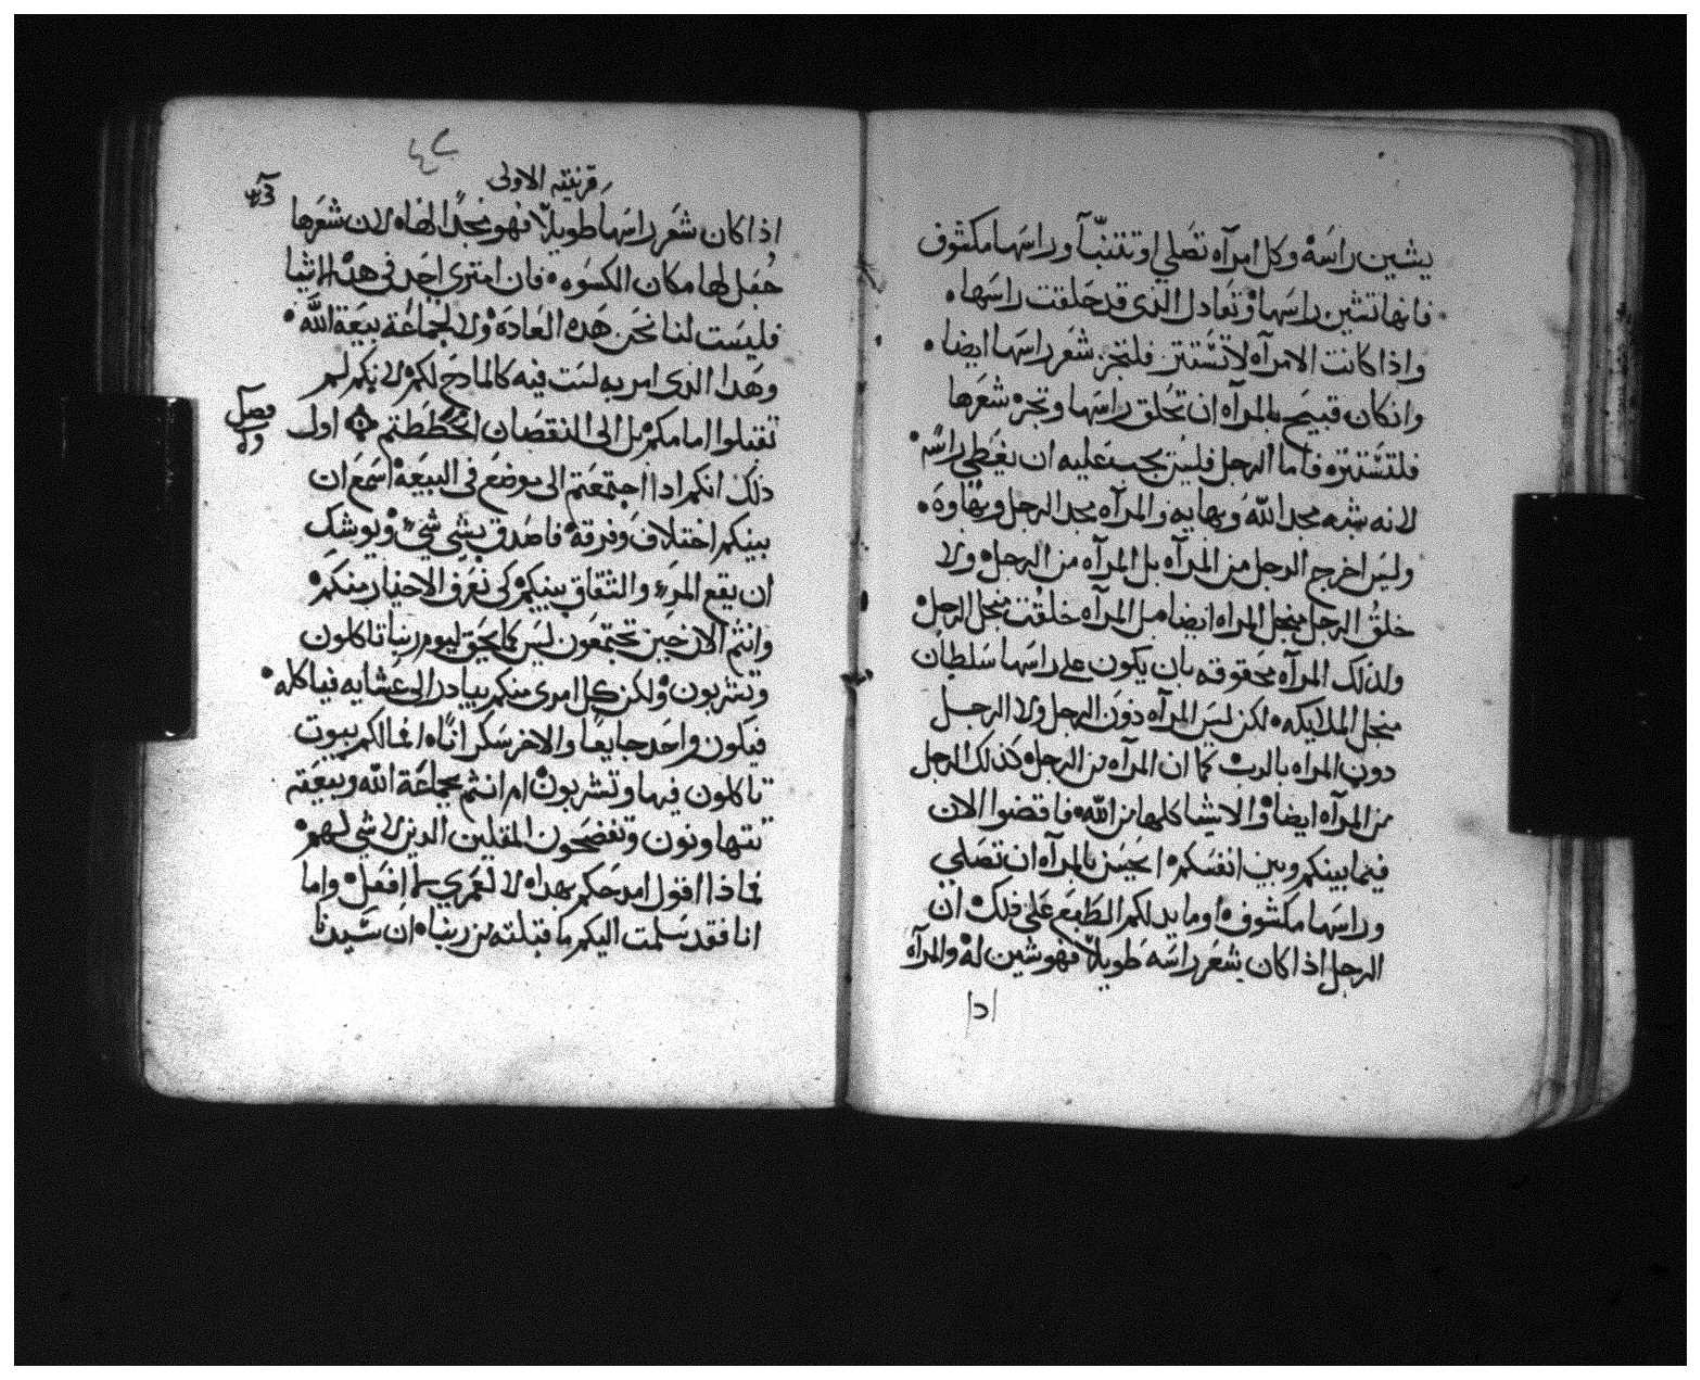 يشين راسه وكل امرآه تصلي او تتنبّآ وراسها مكشوف
فانها تشين راسها وتعادل الذى قد حلقت راسها
واذا كانت الامرآه لا تستتر فلتجز شعر راسها ايضا
وانكان قبيح بالمرآه ان تحلق راسها وتجز شعرها
فلتستتره فاما الرجل فليس يجب عليه ان يغطي راسه
لانه شبه مجد الله وبهايه والمرآه مجد الرجل وبهاوه
وليس اخرج الرجل من المرآه بل المرآه من الرجل ولا
خلق الرجل منجل المراه ايضا بل المرآه خلقت منجل الرجل
ولذلك المرآه محقوقه بان يكون على راسها سلطان
منجل الملايكه لكن ليس المرآه دون الرجل ولا الرجل
دون المراه بالرب كما ان المرآه من الرجل كذلك الرجل
من المرآه ايضا والاشيا كلها من الله فاقضوا الان
فيما بينكم وبين انفسكم ايحسن بالمرآه ان تصلي
وراسها مكشوف اوما يدلكم الطبع على ذلك ان
الرجل اذا كان شعر راسه طويلاً فهو شين له والمرآه
اذا
٤٢
قرنتيه الاولى
اذا كان شعر راسها طويلاً فهو مجداً لها لان شعرها
جعل لها مكان الكسوه فان امترى احد في هذه الاشيا
فليست لنا نحن هذه العاده ولا لجماعة بيعة الله
وهذا الذى امر به لست فيه كالمادح لكم لانكم لم
تقبلوا امامكم بل الى النقصان انحططتم اول
فصل
ذلك انكم اذا اجتمعتم الى موضع في البيعه اسمع ان
بينكم اختلاف وفرقه فاصدق بشي شي ويوشك
ان يقع المرء والشقاق بينكم كي تعرف الاخيار منكم
وانتم الان حين تجتمعون ليس كما يحق ليوم ربنا تاكلون
وتشربون ولكن كل امرى منكم يبادر الى عشايه فياكله
فيكون واحد جايعا والاخر سكراناً اما لكم بيوت
تاكلون فيها وتشربون ام انتم بجماعة الله وبيعته
تتهاونون وتفضحون المقلين الذين لا شي لهم
فماذا اقول امدحكم بهذا لا لعمري لا افعل واما
انا فقد سلمت اليكم ما قبلته من ربنا ان سيدنا